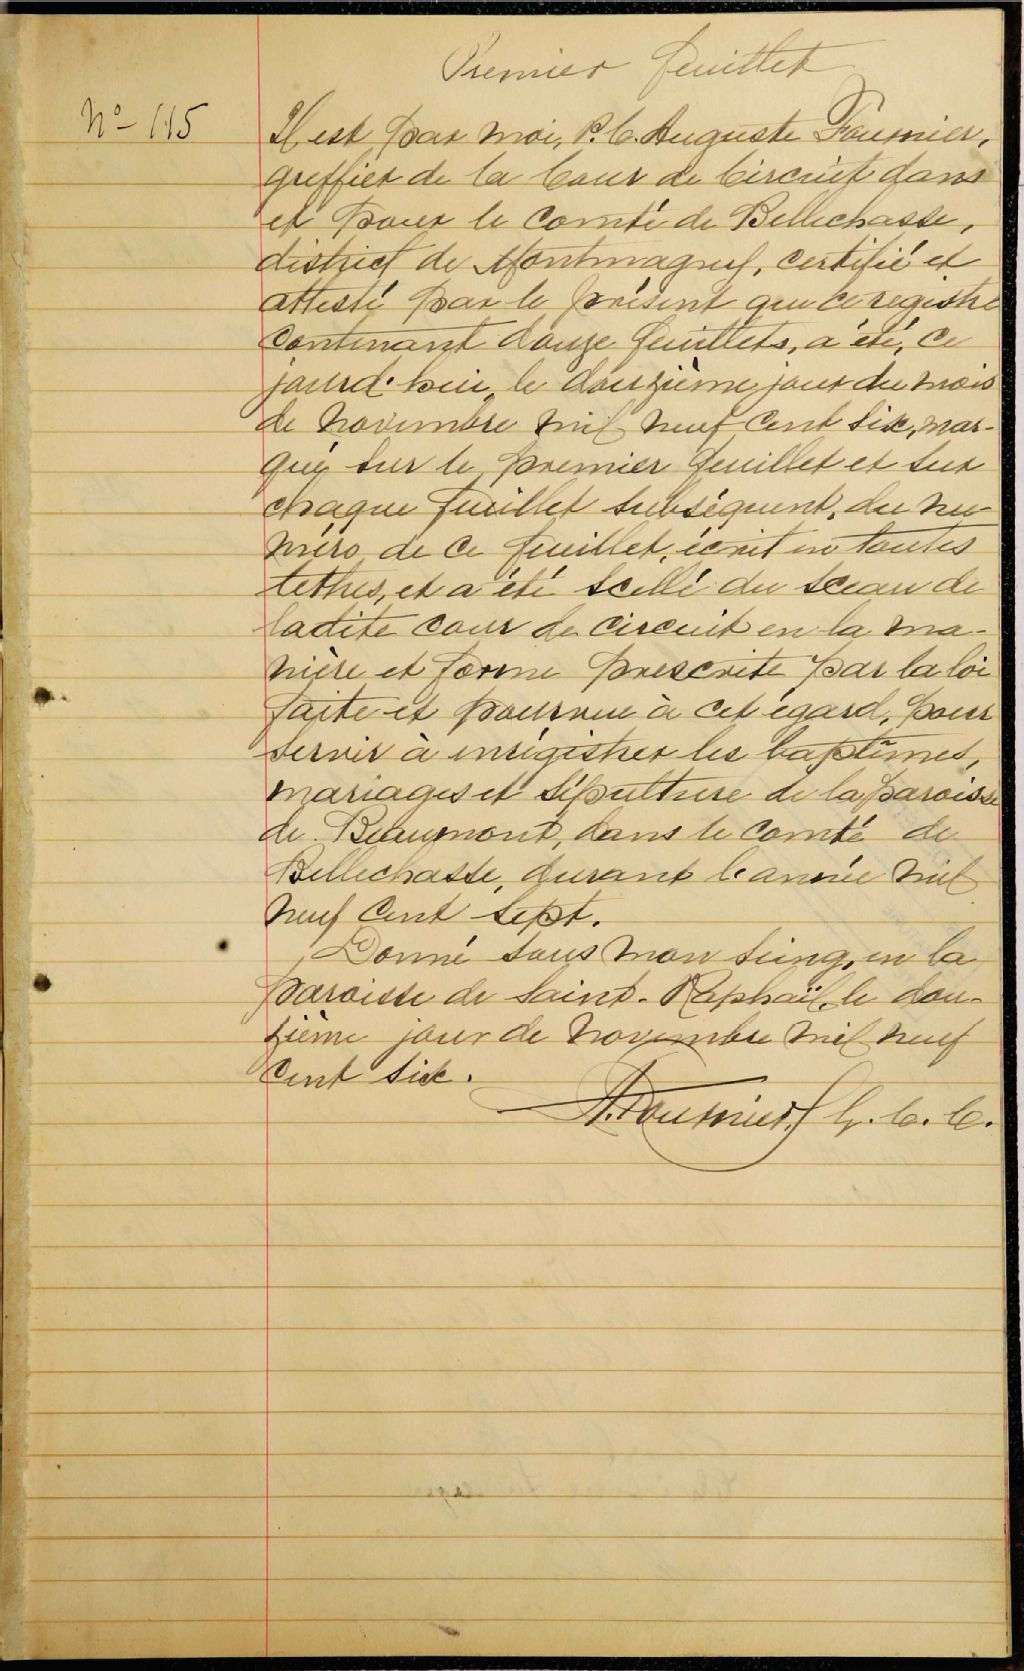 Premier feuillet
No - 115
Il est par moi, P. C. Auguste Fournier,
greffier de la Cour de Circuit dans
et pour le Comté de Bellechasse,
district de Montmagny, certifié et
attesté par le présent que ce registre
contenant douze feuillets, a été, ce
jourd'hui, le douzième jour du mois
de novembre mil neuf cent six, mar-
qué sur le premier feuillet et sur
chaque feuillet subséquent, du nu-
méro de ce feuillet, écrit en toutes
lettres, et a été scellé du sceau de
ladite cour de circuit en la ma-
nière et forme prescrite par la loi
faite et pourvue à cet égard, pour
servir à enrégistrer les baptêmes,
mariages et sépulture de la paroisse
de Beaumont, dans le comté de
Bellechasse, durant l'année mil
neuf cent sept.
Donné sous mon seing, en la
paroisse de Saint-Raphaël, le dou-
zième jour de novembre mil neuf
cent six.
A. Fournier, G. C. C.